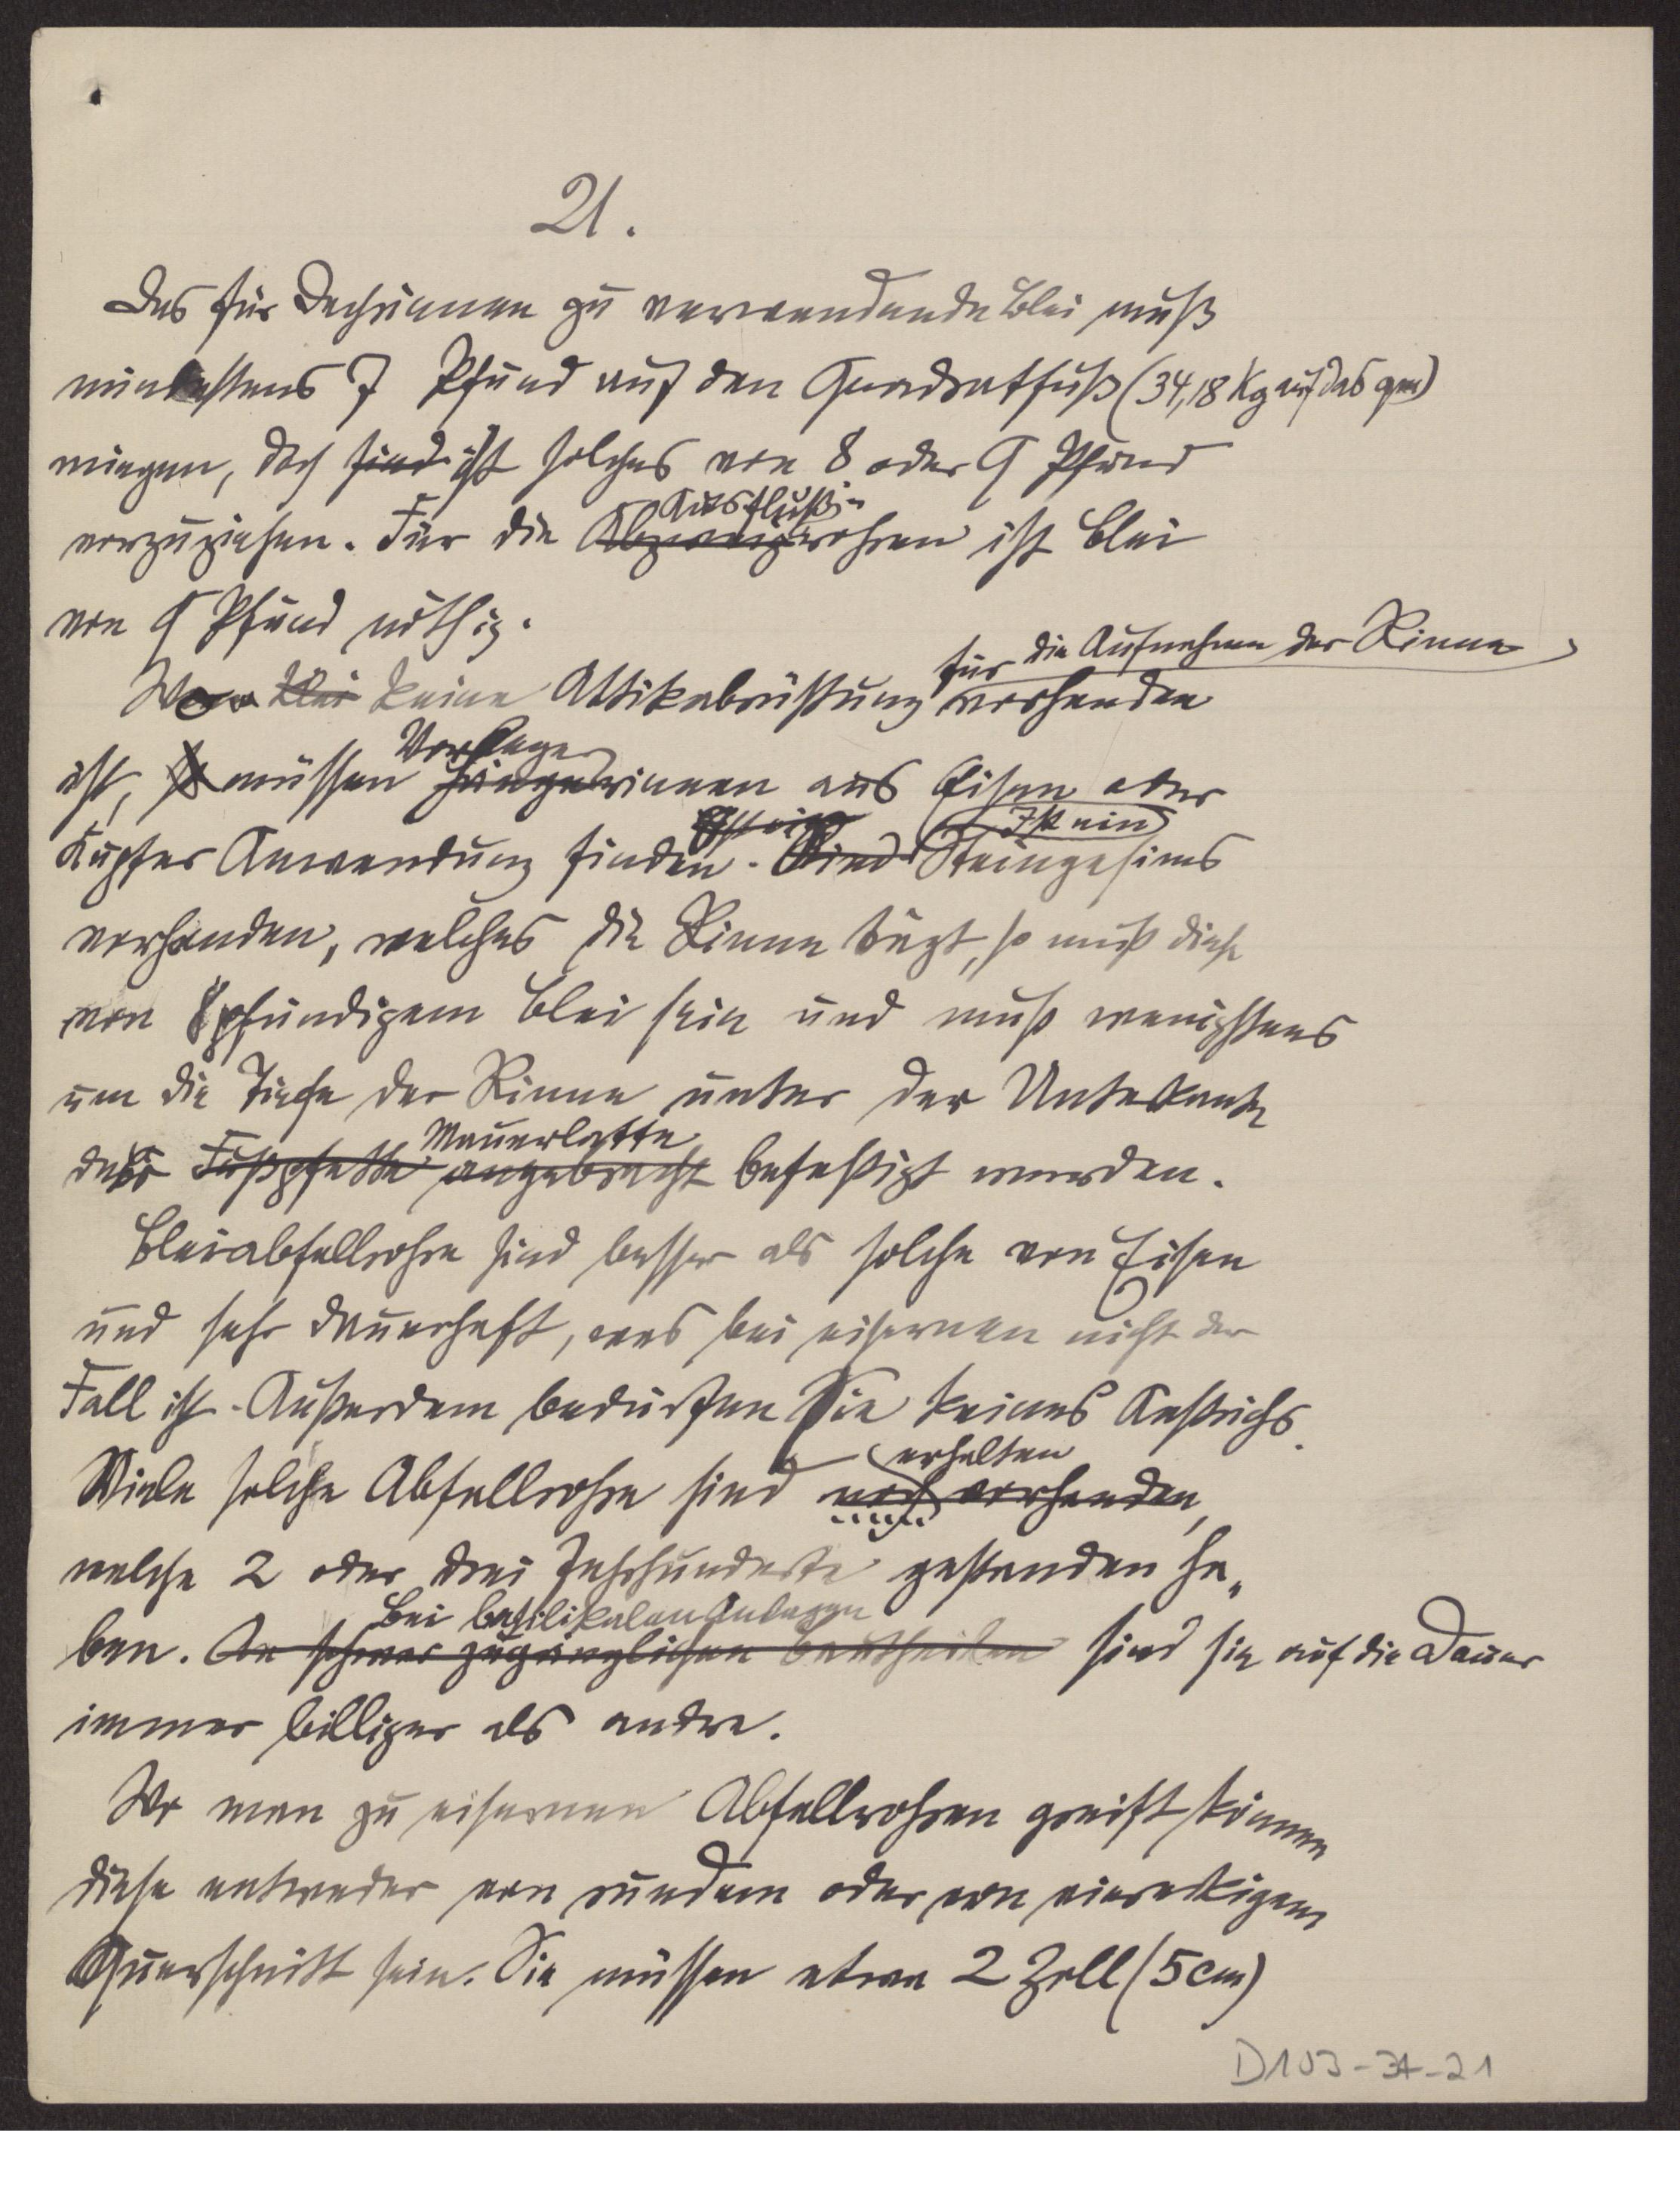 21.
Das für Dachrinnen zu verwendende Blei muß
mindestens 7 Pfund auf den Quadratfuß (34,18 Kg auf das qm)
wiegen, doch sind ist solches von 8 oder 9 Pfund
Ausfluß-
vorzuziehen. Für die Abzweigrohren ist Blei
von 9 Pfund nöthig.
für die Aufnahme der Rinne
Wo Blei keine Attikabrüstung vorhanden
Vorhänge
ist, müssen Hängerinnen aus Eisen oder
Ist ein
Kupfer Anwendung finden. Sind Steingesims
vorhanden, welches die Rinne trägt, so muß diese
von 8pfündigem Blei sein und muß wenigstens
um die Tiefe der Rinne unter der Unterkante
Mauerlatte
der Fußpfette angebracht befestigt werden.
Bleiabfallrohre sind besser als solche von Eisen
und sehr dauerhaft, was bei eisernen nicht der
Fall ist. Außerdem bedürfen Sie keines Anstrichs.
erhalten
Viele solche Abfallrohre sind noch vorhanden,
welche 2 oder drei Jahrhunderte gestanden ha-
Bei basilikalen Anlagen
ben. An schwer zugänglichen Bautheilen sind sie auf die Dauer
immer billiger als andre.
Wo man zu eisernen Abfallrohren greift können
diese entweder von rundem oder von viereckigem
Querschnitt sein. Sie müssen etwa 2 Zoll (5 cm)
D103-34-21